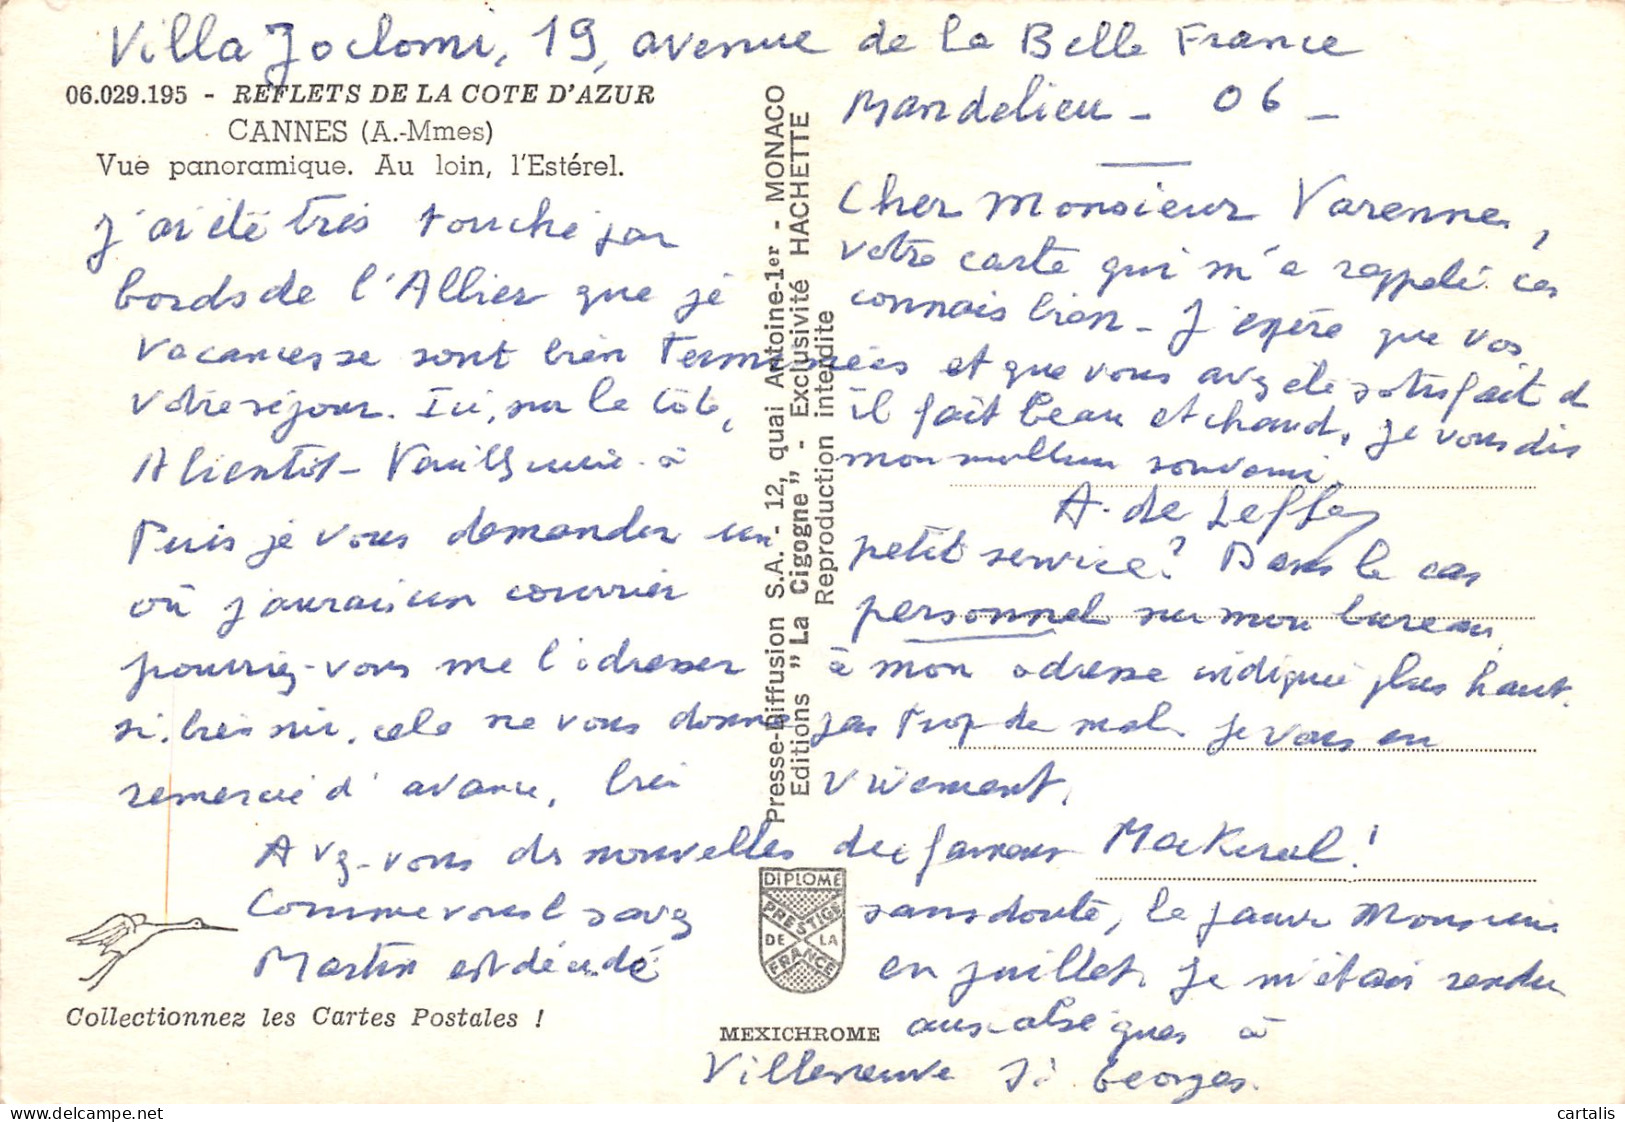 Villa Joclomi, 19, avenue de la Belle France
Mandelieu - 06 -
06.029.195 - REFLETS DE LA COTE D'AZUR
CANNES (A.-Mmes)
Vue panoramique. Au loin, l'Estérel.
Cher Monsieur Varenne,
J'ai été très touché par votre carte qui m'a rappelé ces
bords de l'Allier que je connais bien - J'espère que vos
vacances se sont bien terminées et que vous avez été satisfait d
votre séjour. Ici, sur la Côte, il fait beau et chaud. Je vous dis
A bientôt - à mon meilleur souvenir.
A. de
Puis je vous demander un petit service? Dans le cas
où j'aurais un courrier personnel sur mon bureau,
pourriez-vous me l'adresser à mon adresse indiquée plus haut.
si, bien sûr, cela ne vous donne pas trop de mal. Je vous en
remercie d'avance, bien vivement.
Avez-vous des nouvelles du fameux Makeral!
Comme vous l savez sans doute, le pauvre Monsieur
Martin est décédé en juillet. Je m'étais rendu
aux obsèques à
Villeneuve St Georges.
Presse-Diffusion S.A. - 12, quai Antoine-1er - MONACO
Editions "La Cigogne" - Exclusivité HACHETTE
Reproduction interdite
DIPLOME
PRESTIGE
DE LA
FRANCE
Collectionnez les Cartes Postales !
MEXICHROME
cartalis